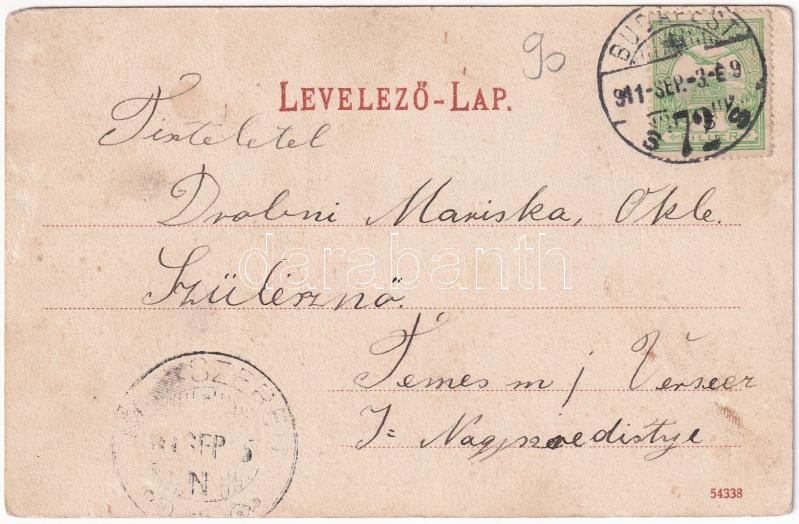 90
BUDAPEST
911-SEP.-3-É 9
72
S S
FILLÉR
LEVELEZŐ-LAP.
Tisteletel
Drobni Mariska, Okle.
Szülésznő.
darabanth
Temes m / Verseer
I= Nagyszredistye
SZERE
SEP 5
N
54338